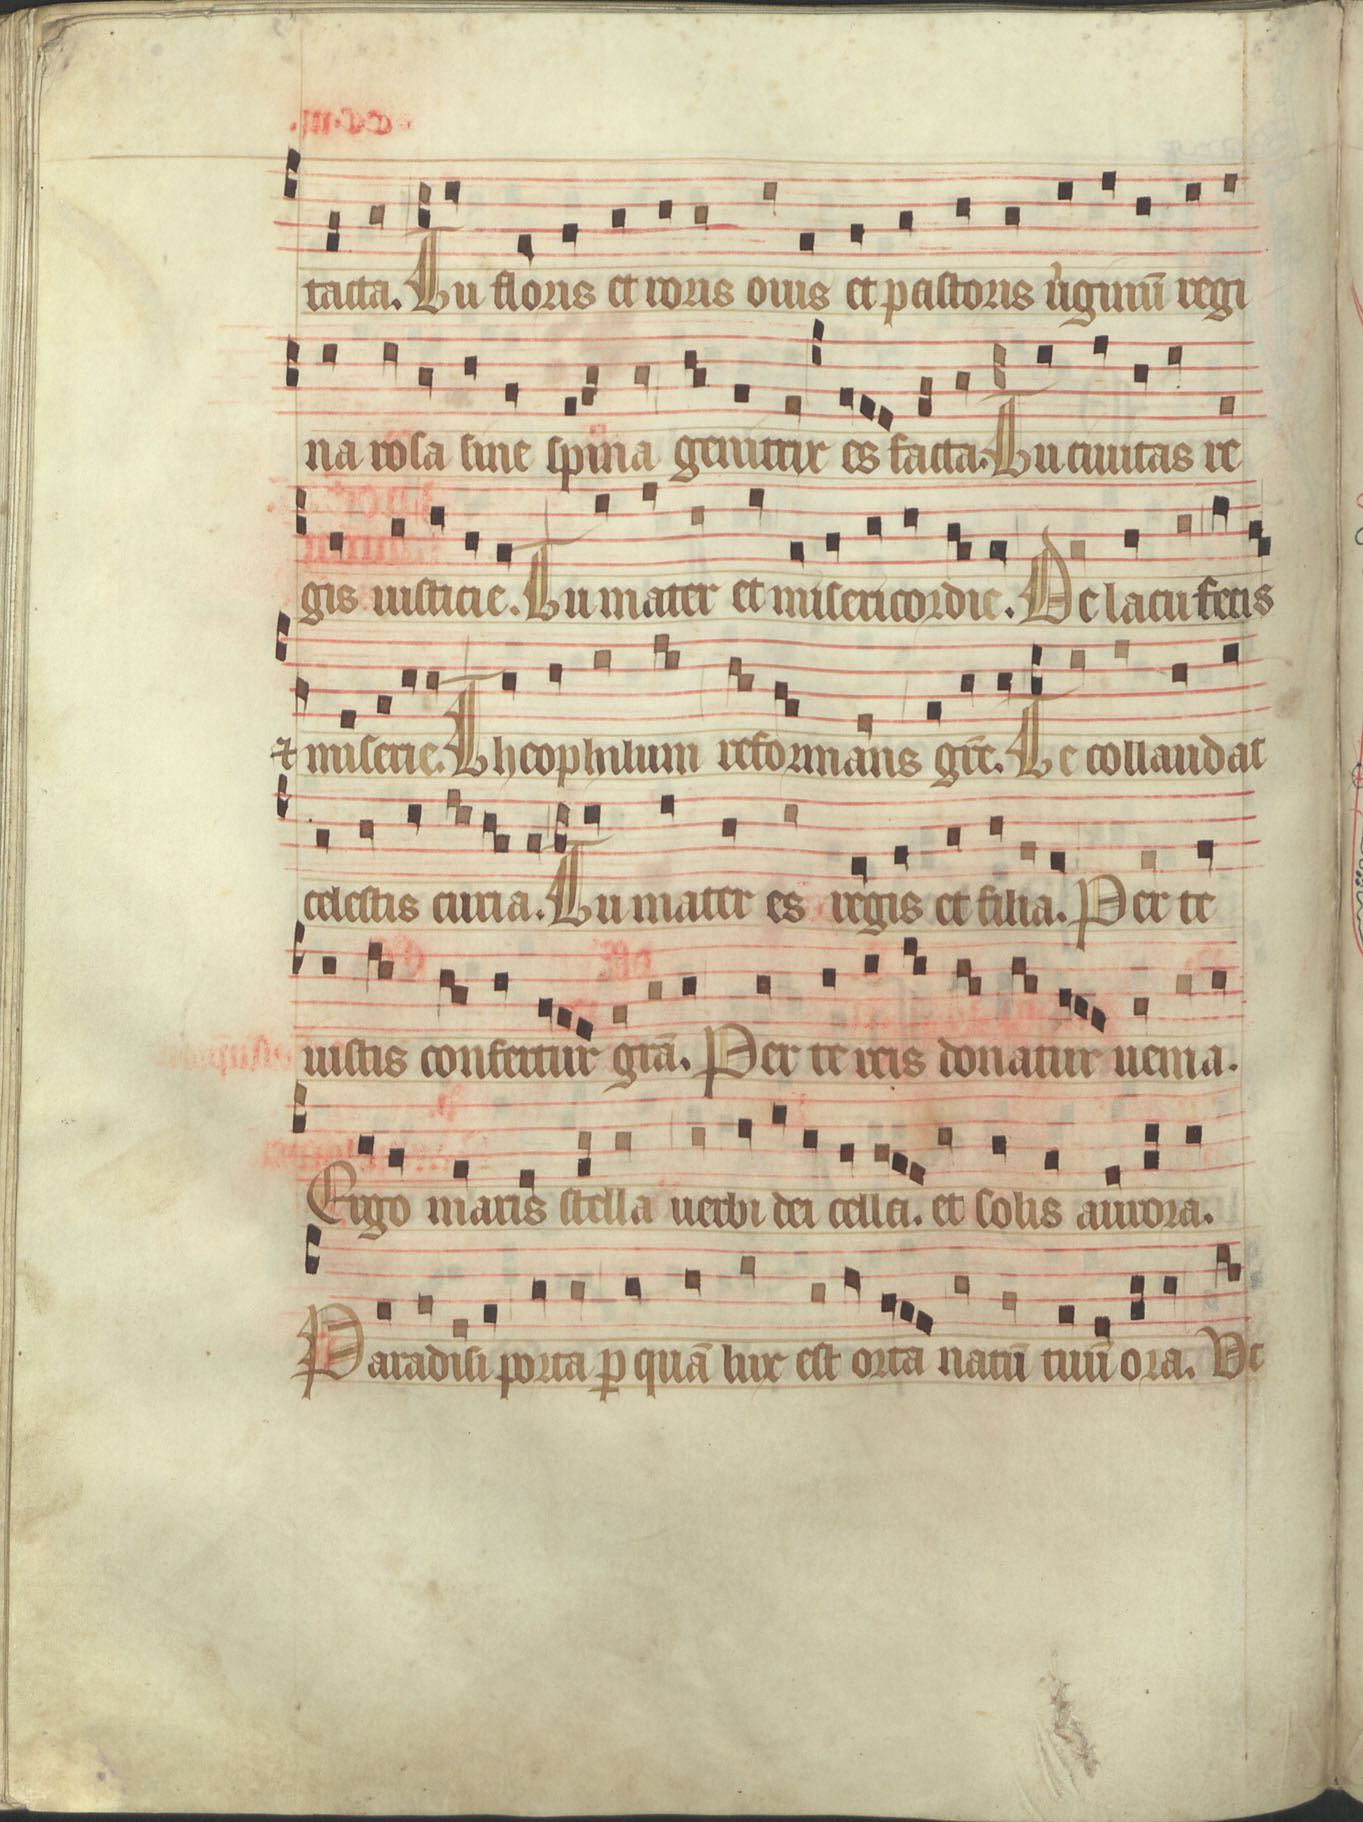 tacta. Tu floris et roris ouis et pastoris u̍ginū regi
na rosa sine spina genitrix es facta. Tu ciuitas re
gis iusticie. Tu mater et misericordie. De lacu fecis
⁊ miserie. Theophilum reformans gr̄e. Te collaudat
celestis curia. Tu mater es regis et filia. Per te
iustis confertur gr̄a. Per te reis donatur uenia.
Ergo maris stella uerbi dei cella. et solis aurora.
Paradisi porta ꝑ quā lux est orta natū tuū ora. Vt